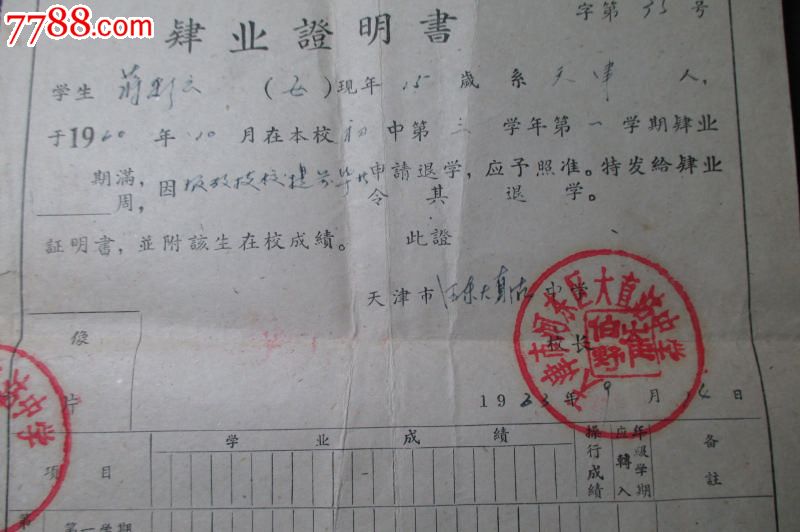 7788.com
字第 35 号
肄业證明書
学生 蒋 (女)现年 15 歲 系 天津 人,
于1960年10月在本校初中第三学年第一学期肄业
期滿, 因 提前毕业 申請退学, 应予照准。特发給肄业
周, 令其退学。
証明書, 並附該生在校成績。 此證
天津市 河东大直沽 中学
天津市河东区大直沽中学
校长
19 年 9 月 14 日
像
片
沽中学
学业成績
項目
操行成績
应轉入
年级学期
备註
第
第一学期